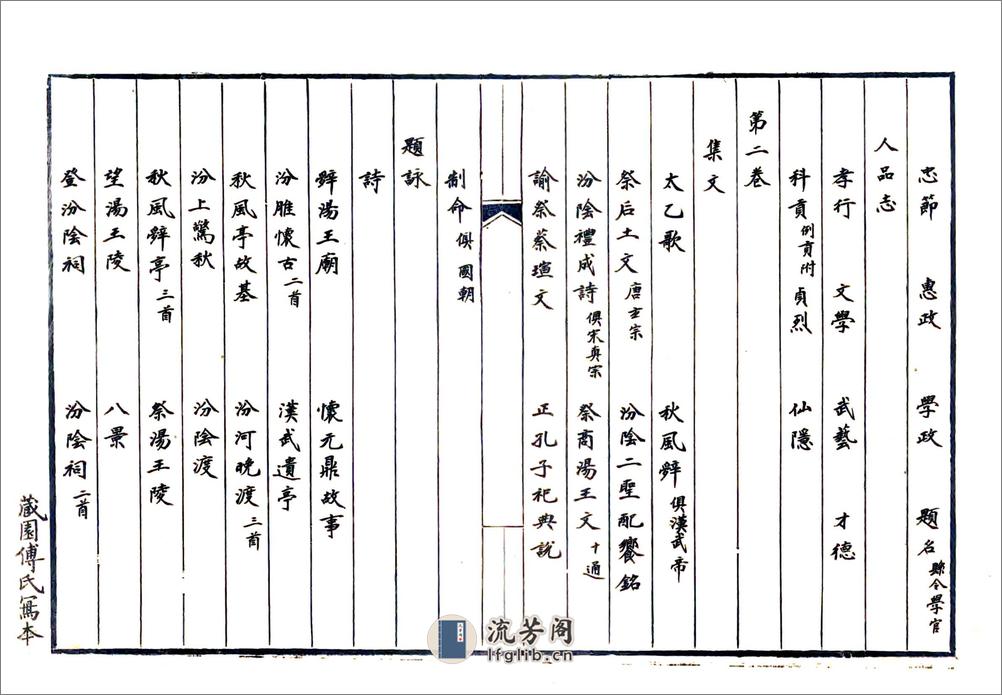 忠節 惠政 學政 題名縣令學官
人品志
孝行 文學 武藝 才德
科貢例貢附 貞烈 仙隱
第二卷
集文
太乙歌 秋風辭俱漢武帝
祭后土文唐玄宗 汾陰二聖配饗銘
汾陰禮成詩俱宋真宗 祭商湯王文十通
諭祭蔡瑄文 正孔子祀典說
制命俱國朝
題詠
詩
辭湯王廟 懷元鼎故事
汾脽懷古二首 漢武遺亭
秋風亭故基 汾河晚渡三首
汾上驚秋 汾陰渡
秋風辭亭三首 祭湯王陵
望湯王陵 八景
登汾陰祠 汾陰祠二首
藏園傅氏寫本
流芳阁
lfglib.cn